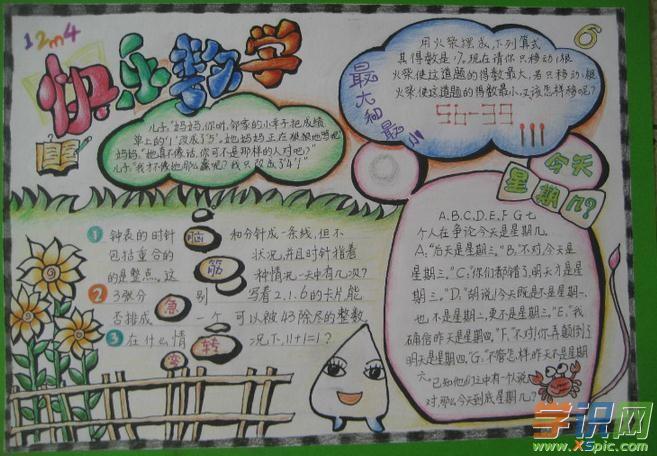 12m4
快乐数学
儿子:“妈妈,你听,邻家的小辛子把成绩
单上的“1”改成了“5”,她妈妈正在狠狠地骂他!”
妈妈:“她真不像话,你可不是那样的人对吧?”
儿子:“我才不像他那么蠢呢?我只改成了“4”!”
最大和最小
用火柴摆成,下列算式
其得数是17,现在请你只移动1根
火柴使这道题的得数最大,若只移动1根
火柴使这道题的得数最小,又该怎样移呢?
56-39
6
今天
星期几?
A、B、C、D、E、F、G七
个人在争论今天是星期几。
A:“后天是星期三。”B:“不对,今天是
星期三。”C:“你们都错了,明天才是星
期三。”D:“胡说!今天既是不是星期一,
也不是星期二,更不是星期三。”E:“我
确信昨天是星期四。”F:“不对!你弄颠倒了
明天是星期四。”G:“不管怎样昨天不是星期
六。”已知他们之中有一个人说
对,那么今天到底星期几?
脑筋急转弯
1 钟表的时针和分针成一条线,但不
包括重合的状况,并且时针指着
的是整点。这种情况一天中有几次?
2 3张分别写着2、1、6的卡片能
否排成一个可以被43除尽的整数
3 在什么情况下,11+1=1?
学识网
www.XSpic.com